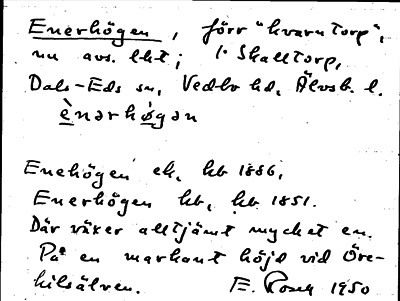 Enerhögen, förr "kvarntorp",
nu avs. lht; i Skalltorp,
Dals-Eds sn, Vedbo hd, Älvsb. l.
ènərhø̀gən
Enehögen ek. kb 1886,
Enerhögen hb. kb 1851.
Där växer alltjämt mycket en.
På en markant höjd vid Öre-
kilsälven. E. Rosell 1950